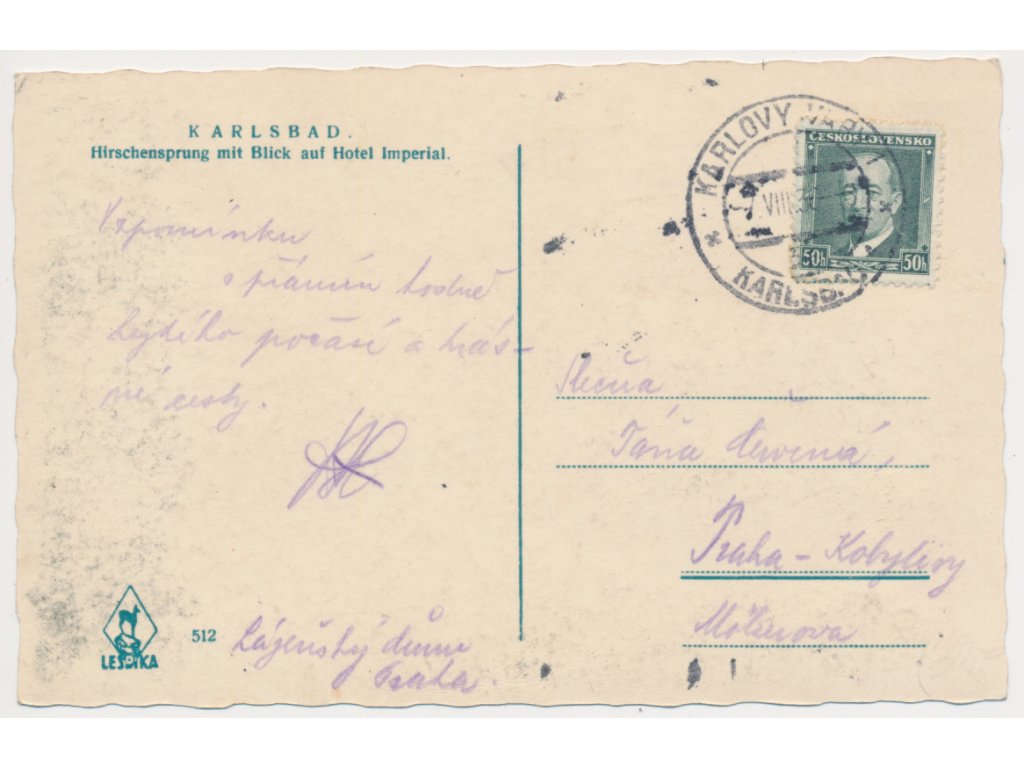 KARLSBAD.
Hirschensprung mit Blick auf Hotel Imperial.
Vzpomínku
s přáním hodně
hezkého počasí a krás-
né cesty.
512
LESDIKA
Lázeňský dům
Praha.
KARLOVY VARY
VIII
KARLSBAD
ČESKOSLOVENSKO
50h 50h
Slečna
Táňa Červená,
Praha - Kobylisy